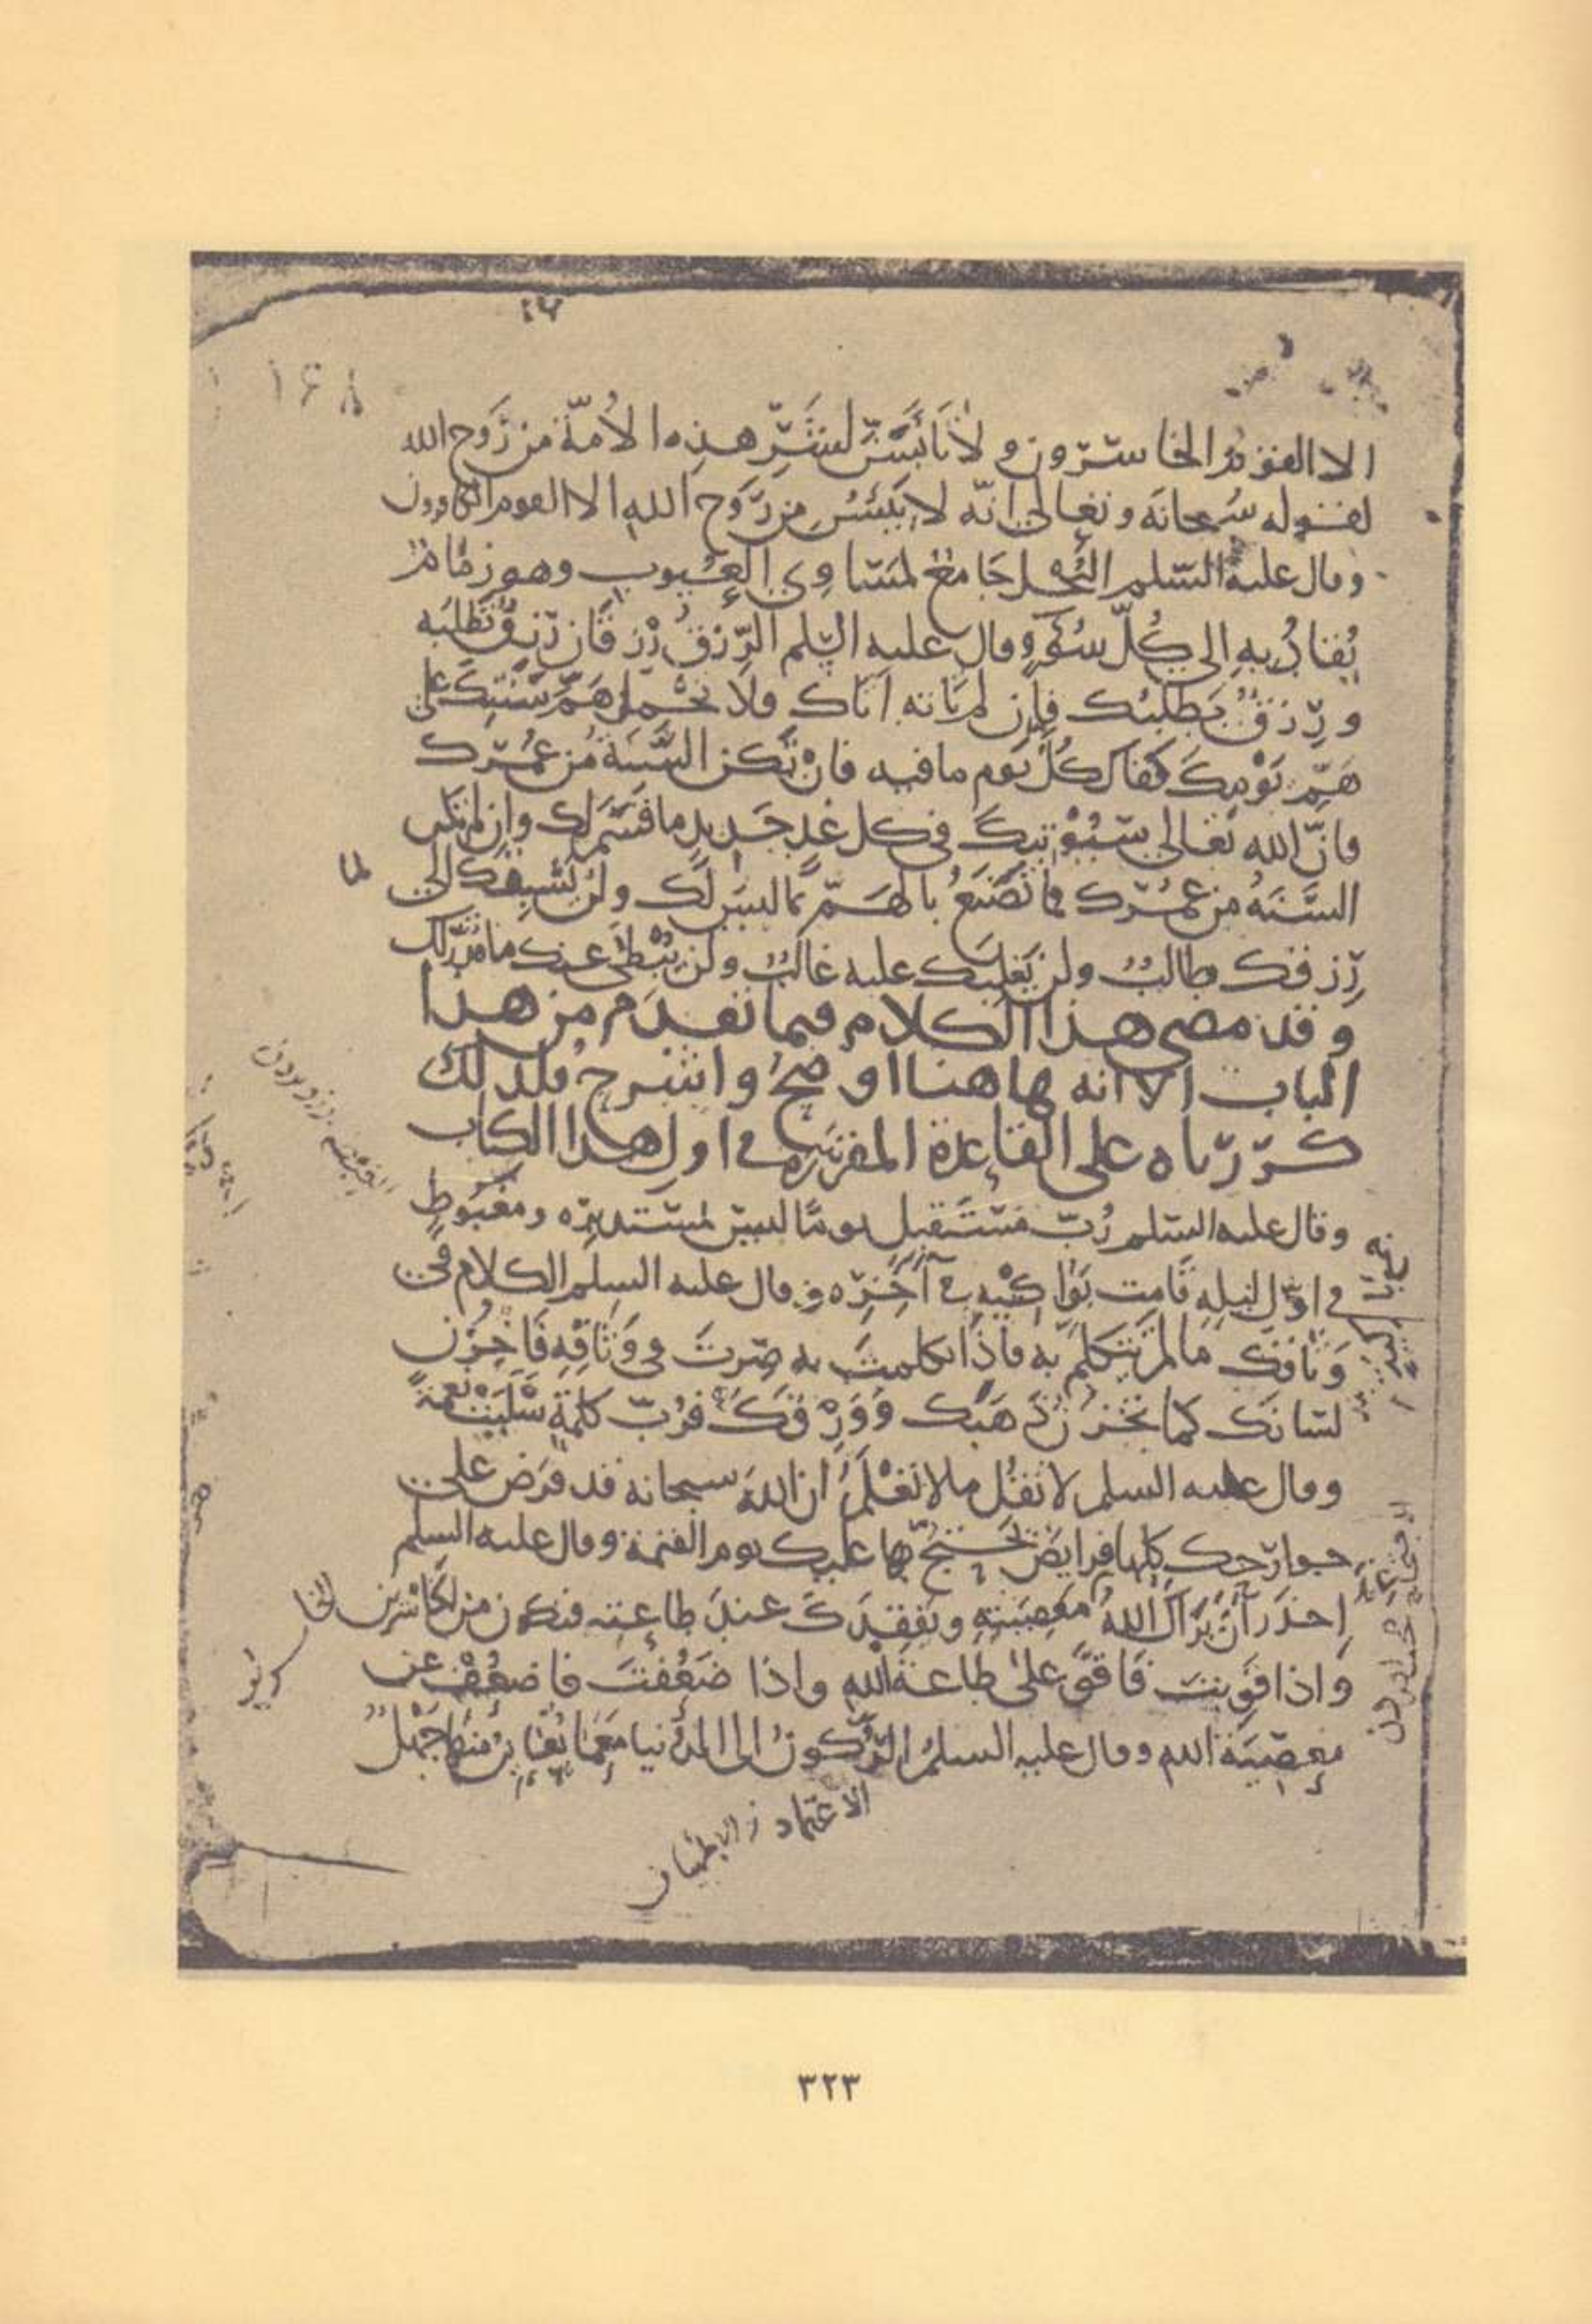 ١٤٨
الا القوم الخاسرون ولا تأيسن لشر هذه الأمة من روح الله
لقوله سبحانه وتعالى انه لا ييئس من روح الله الا القوم الكافرون
وقال عليه السلم البخل جامع لمساوي العيوب وهو زمام
يقاد به الى كل سوء وقال عليه السلم الرزق رزقان رزق تطلبه
ورزق يطلبك فإن لم تأته اتاك فلا تحمل هم سنتك على
هم يومك كفاك كل يوم ما فيه فان تكن السنة من عمرك
فان الله تعالى سيؤتيك في كل غد جديد ما قسم لك وإن لم تكن
السنة من عمرك فما تصنع بالهم لما ليس لك ولن يسبقك الى
لما
رزقك طالب ولن يغلبك عليه غالب ولن يبطئ عنك ما قدر لك
وقد مضى هذا الكلام فيما تقدم من هذا
الباب الا انه هاهنا اوضح واشرح فلذلك
كررناه على القاعدة المقررة في اول هذا الكتاب
وقال عليه السلم رب مستقبل يوما ليس بمستدبره ومغبوط
في اول ليله قامت بواكيه في آخره وقال عليه السلم الكلام في
وثاقك ما لم تتكلم به فاذا تكلمت به صرت في وثاقه فاخزن
لسانك كما تخزن ذهبك وورقك فرب كلمة سلبت نعمة
وقال عليه السلم لا تقل ما لا تعلم ان الله سبحانه قد فرض على
جوارحك كلها فرايض تحتج بها عليك يوم القيمة وقال عليه السلم
احذر أن يراك الله معصيته ويفقدك عند طاعته فتكون من الخاسرين
واذا قويت فاقو على طاعة الله واذا ضعفت فاضعف عن
معصية الله وقال عليه السلم الركون الى الدنيا مع ما تعاين منها جهل
الاعتماد والاطمينان
٣٢٣